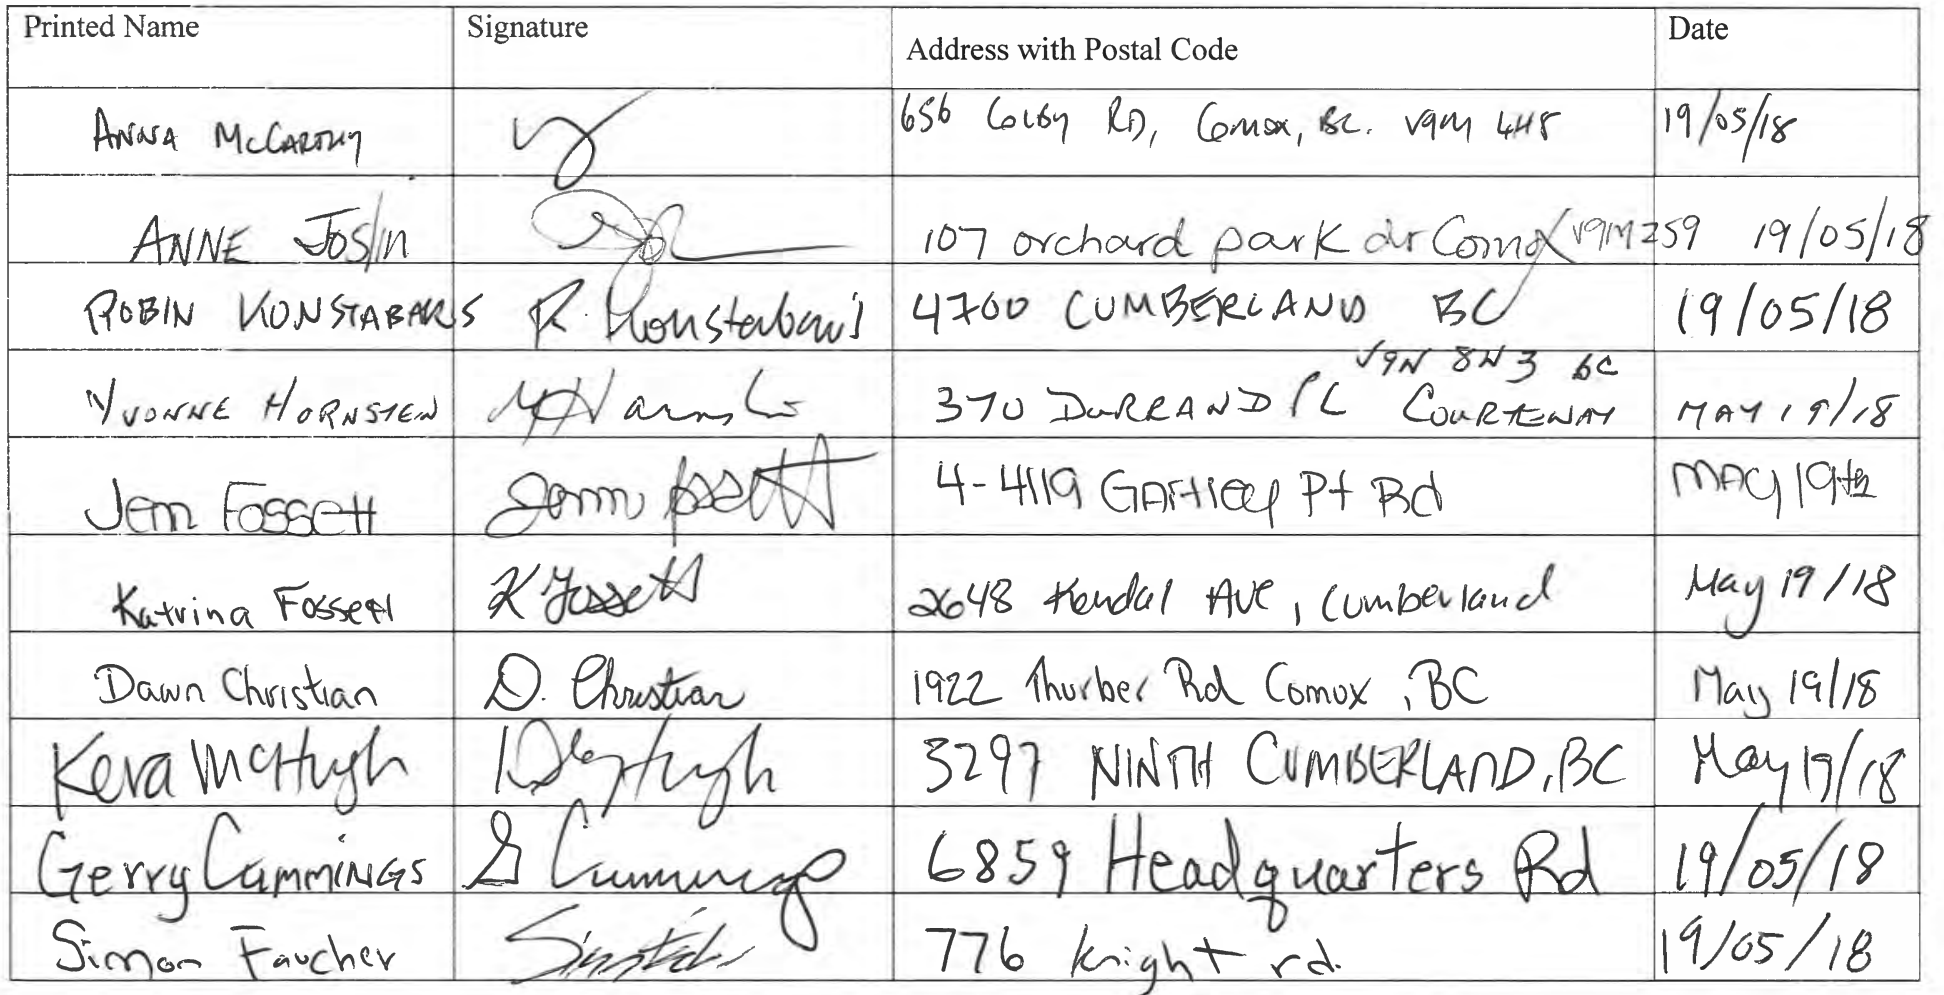 Printed Name Signature Address with Postal Code Date
ANNA McCARTHY 656 Colby RD, Comox, BC. V9M 4H8 19/05/18
ANNE Joslin 107 orchard park dr Comox V9M 2S9 19/05/18
ROBIN KONSTABARIS R. Konstabaris 4700 CUMBERLAND BC 19/05/18
V9N 8N3 BC
YVONNE HORNSTEIN 370 DURRAND PL COURTENAY MAY 19/18
Jenn Fossett Jenn Fossett 4-4119 GARTley Pt Rd MAY 19th
Katrina Fossett K Fossett 2648 Kendal Ave, Cumberland May 19/18
Dawn Christian D. Christian 1922 Thurber Rd Comox, BC May 19/18
Kera McHugh 3297 NINTH CUMBERLAND, BC May 19/18
Gerry CumMINGS G Cummings 6859 Headquarters Rd 19/05/18
Simon Faucher 776 knight rd. 19/05/18